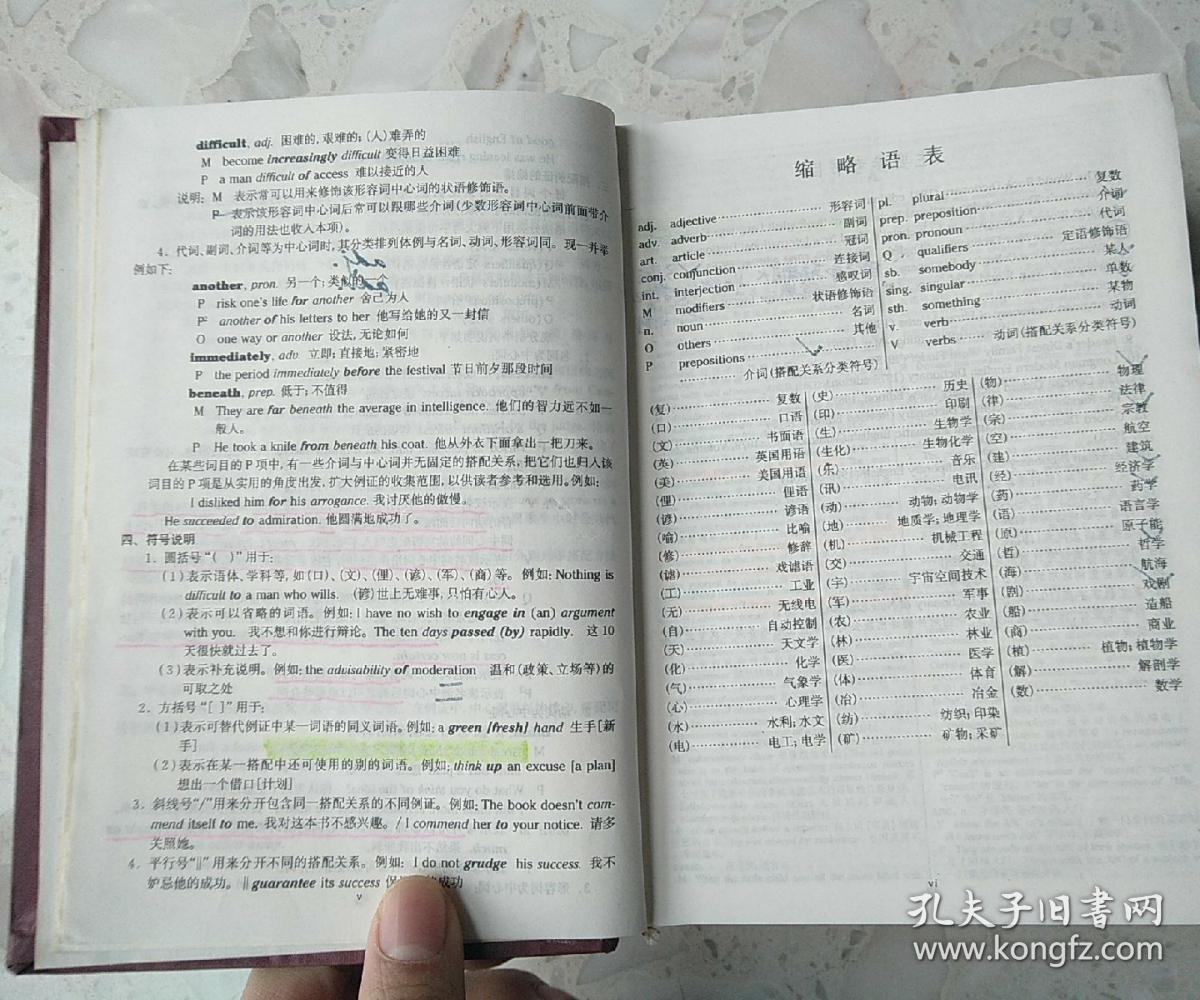 difficult, adj. 困难的,艰难的;(人)难弄的
M become increasingly difficult 变得日益困难
P a man difficult of access 难以接近的人
说明: M 表示常可以用来修饰该形容词中心词的状语修饰语。
P 表示该形容词中心词后常可以跟哪些介词(少数形容词中心词前面带介
词的用法也收入本项)。
4. 代词、副词、介词等为中心词时,其分类排列体例与名词、动词、形容词同。现一并举
例如下:
another, pron. 另一个;类似的一个
P risk one's life for another 舍己为人
P² another of his letters to her 他写给她的又一封信
O one way or another 设法,无论如何
immediately, adv. 立即;直接地;紧密地
P the period immediately before the festival 节日前夕那段时间
beneath, prep. 低于;不值得
M They are far beneath the average in intelligence. 他们的智力远不如一
般人。
P He took a knife from beneath his coat. 他从外衣下面拿出一把刀来。
在某些词目的P项中,有一些介词与中心词并无固定的搭配关系,把它们也归入该
词目的P项是从实用的角度出发,扩大例证的收集范围,以供读者参考和选用。例如:
I disliked him for his arrogance. 我讨厌他的傲慢。
He succeeded to admiration. 他圆满地成功了。
四、符号说明
1. 圆括号“( )”用于:
(1)表示语体、学科等,如(口)、(文)、(俚)、(谚)、(军)、(商)等。例如: Nothing is
difficult to a man who wills. (谚)世上无难事,只怕有心人。
(2)表示可以省略的词语。例如: I have no wish to engage in (an) argument
with you. 我不想和你进行辩论。The ten days passed (by) rapidly. 这10
天很快就过去了。
(3)表示补充说明。例如: the advisability of moderation 温和(政策、立场等)的
可取之处
2. 方括号“[ ]”用于:
(1)表示可替代例证中某一词语的同义词语。例如: a green [fresh] hand 生手[新
手]
(2)表示在某一搭配中还可使用的别的词语。例如: think up an excuse [a plan]
想出一个借口[计划]
3. 斜线号“/”用来分开包含同一搭配关系的不同例证。例如: The book doesn't com-
mend itself to me. 我对这本书不感兴趣。/ I commend her to your notice. 请多
关照她。
4. 平行号“‖”用来分开不同的搭配关系。例如: I do not grudge his success. 我不
妒忌他的成功。‖ guarantee its success 成功
v
缩略语表
adj. adjective 形容词
adv. adverb 副词
art. article 冠词
conj. conjunction 连接词
int. interjection 感叹词
M modifiers 状语修饰语
n. noun 名词
O others 其他
P prepositions
介词(搭配关系分类符号)
pl. plural 复数
prep. preposition 介词
pron. pronoun 代词
Q qualifiers 定语修饰语
sb. somebody 某人
sing. singular 单数
sth. something 某物
v. verb 动词
V verbs 动词(搭配关系分类符号)
(复) 复数
(口) 口语
(文) 书面语
(英) 英国用语
(美) 美国用语
(俚) 俚语
(谚) 谚语
(喻) 比喻
(修) 修辞
(谑) 戏谑语
(工) 工业
(无) 无线电
(自) 自动控制
(天) 天文学
(化) 化学
(气) 气象学
(心) 心理学
(水) 水利;水文
(电) 电工;电学
(史) 历史
(印) 印刷
(生) 生物学
(生化) 生物化学
(乐) 音乐
(讯) 电讯
(动) 动物;动物学
(地) 地质学;地理学
(机) 机械工程
(交) 交通
(宇) 宇宙空间技术
(军) 军事
(农) 农业
(林) 林业
(医) 医学
(体) 体育
(冶) 冶金
(纺) 纺织;印染
(矿) 矿物;采矿
(物) 物理
(律) 法律
(宗) 宗教
(空) 航空
(建) 建筑
(经) 经济学
(药) 药学
(语) 语言学
(原) 原子能
(哲) 哲学
(海) 航海
(剧) 戏剧
(船) 造船
(商) 商业
(植) 植物;植物学
(解) 解剖学
(数) 数学
vi
孔夫子旧书网
www.kongfz.com